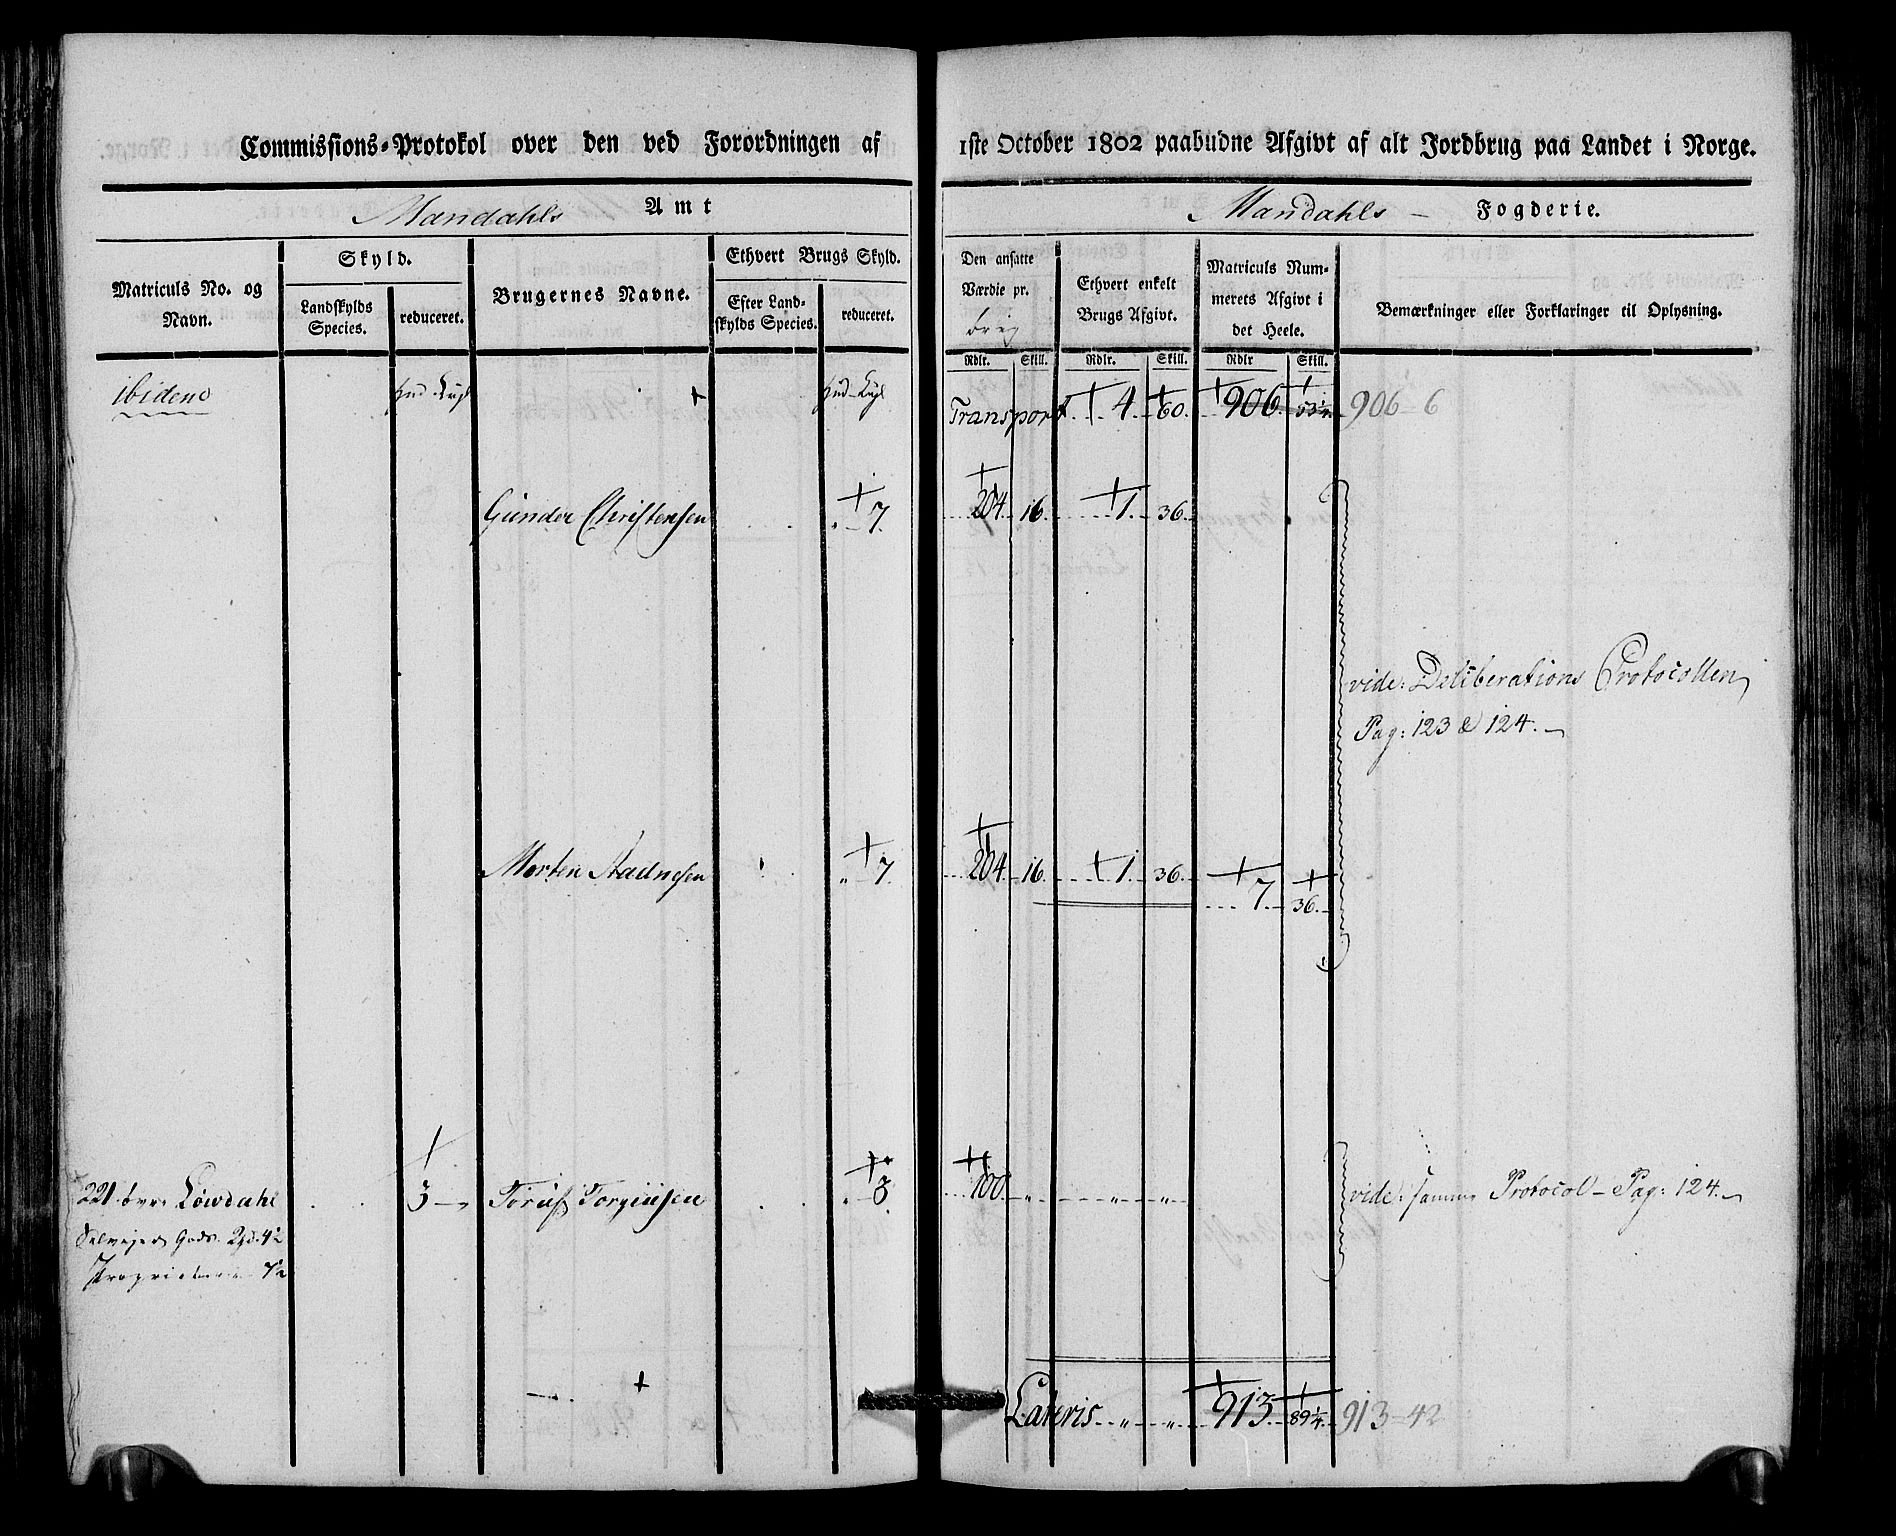 Commissions-Protokol over den ved Forordningen af 1ste October 1802 paabudne Afgivt af alt Jordbrug paa Landet i Norge.
Mandahls Amt Mandahls – Fogderie.
Matriculs No. og Navn.
Skyld.
Landskylds Species.
reduceret.
Brugernes Navne.
Ethvert Brugs Skyld.
Efter Landskylds Species.
reduceret.
Den ansatte Værdie pr.
Ethvert enkelt Brugs Afgivt.
Matriculs Nummerets Afgivt i det Heele.
Bemærkninger eller Forklaringer til Oplysning.
Rdlr. Skill. Rdlr. Skill. Rdlr Skill.
ibidem Hud Kugl Hud Kugl Transport 4 60. 906. 53¼ 906 6
Gunder Christensen „ 7. 204. 16. 1. 36.
vide: Deliberations Protocollen
Pag: 123 & 124.
Morten Aadnesen „ 7. 204. 16. 1. 36. 7. 36.
221 Løwdahl 3 Torgiusen „ 3. 100. „ „ „ vide: samme Protocol – Pag: 124.
Selvejer Gods.
Lateris „ „ 913. 89¼. 913 42